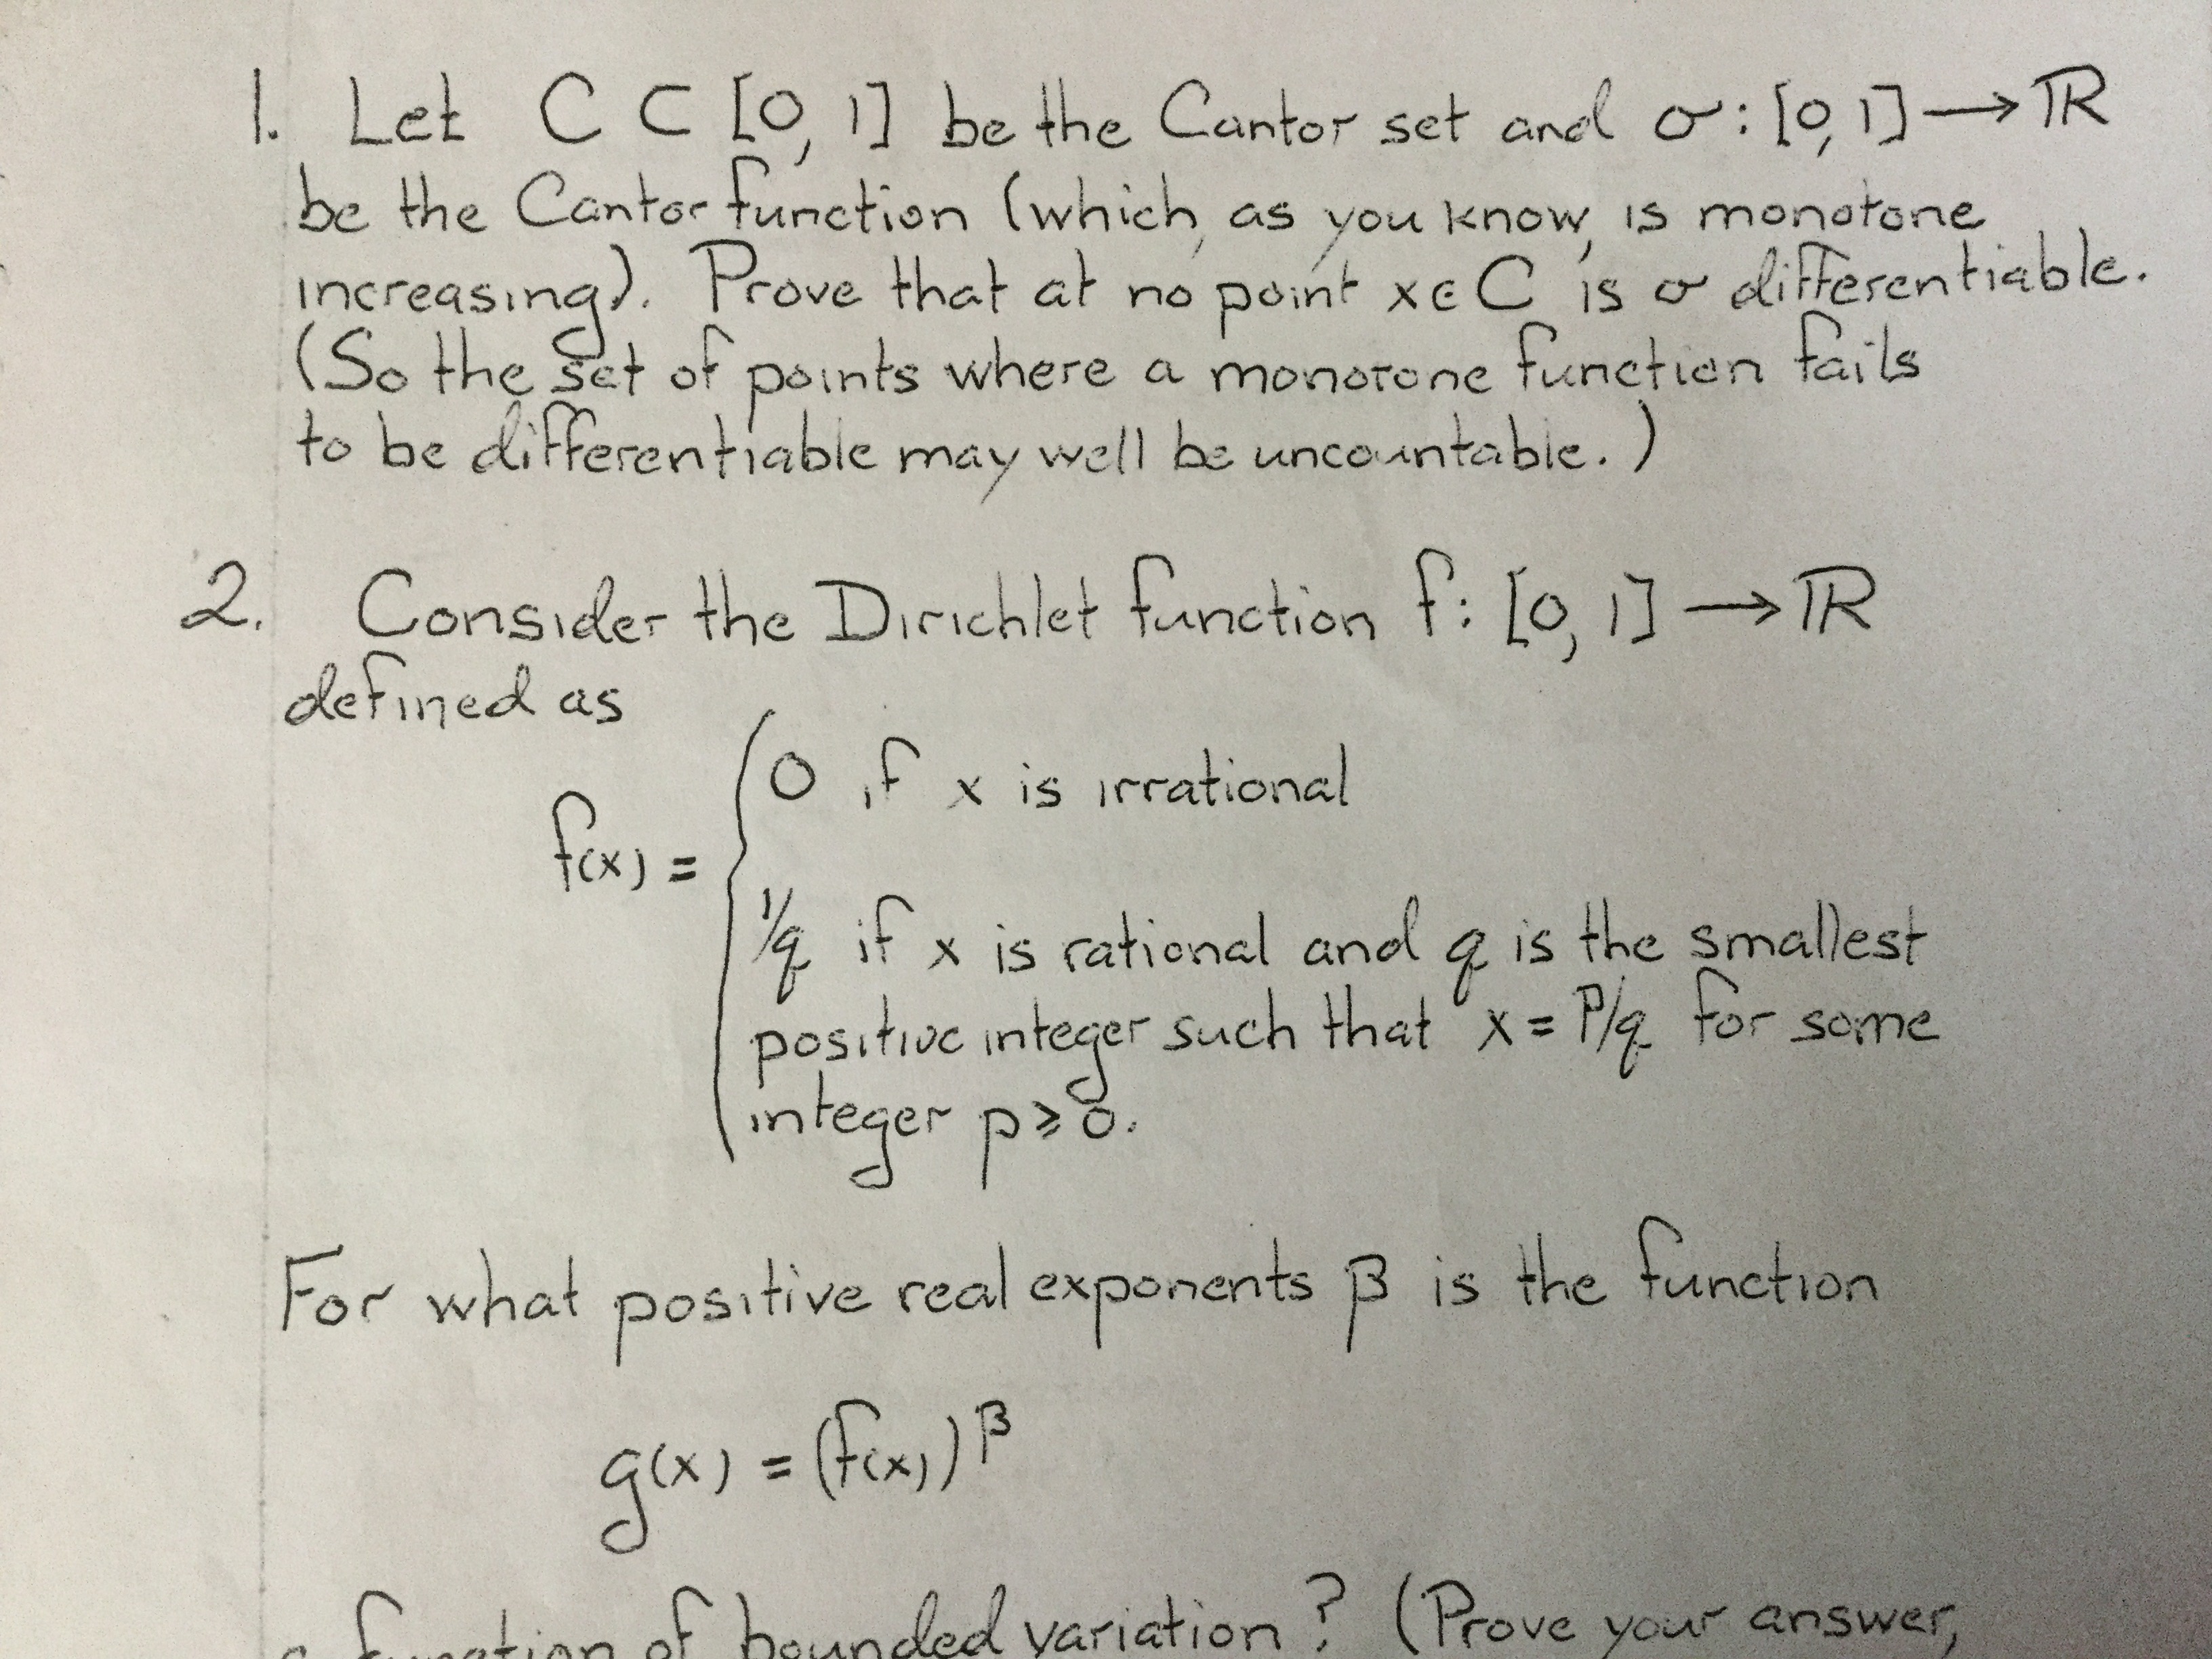 1. Let C ⊂ [0, 1] be the Cantor set and σ: [0, 1] → ℝ
be the Cantor function (which, as you know, is monotone
increasing). Prove that at no point x ∈ C is σ differentiable.
(So the set of points where a monotone function fails
to be differentiable may well be uncountable.)
2. Consider the Dirichlet function f: [0, 1] → ℝ
defined as
0 if x is irrational
f(x) = {
1/q if x is rational and q is the smallest
positive integer such that x = p/q for some
integer p ≥ 0.
For what positive real exponents β is the function
g(x) = (f(x))^β
a function of bounded variation? (Prove your answer,